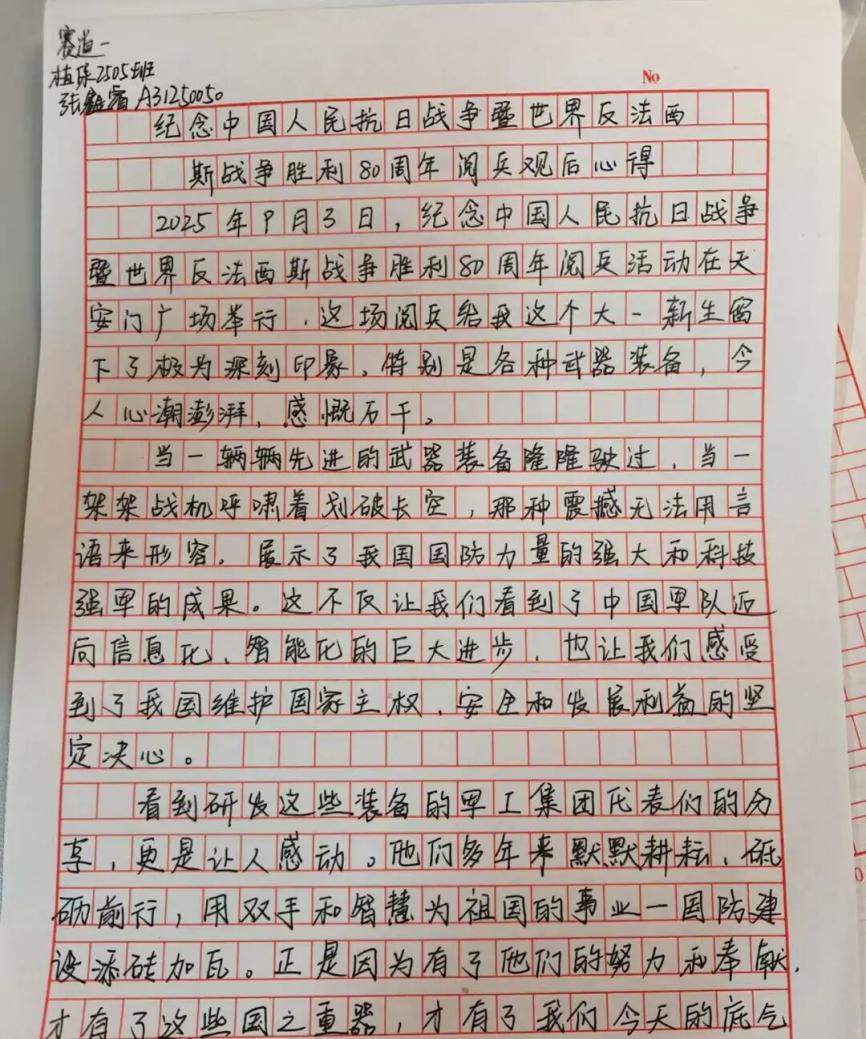 赛道一
植保2505班
张 A31250050
No
纪念中国人民抗日战争暨世界反法西
斯战争胜利80周年阅兵观后心得
2025年9月3日，纪念中国人民抗日战争
暨世界反法西斯战争胜利80周年阅兵活动在天
安门广场举行，这场阅兵给我这个大一新生留
下了极为深刻印象。特别是各种武器装备，令
人心潮澎湃，感慨万千。
当一辆辆先进的武器装备隆隆驶过，当一
架架战机呼啸着划破长空，那种震撼无法用言
语来形容。展示了我国国防力量的强大和科技
强军的成果。这不仅让我们看到了中国军队迈
向信息化、智能化的巨大进步，也让我们感受
到了我国维护国家主权、安全和发展利益的坚
定决心。
看到研发这些装备的军工集团代表们的分
享，更是让人感动。他们多年来默默耕耘、砥
砺前行，用双手和智慧为祖国的事业一国防建
设添砖加瓦。正是因为有了他们的努力和奉献，
才有了这些国之重器，才有了我们今天的底气